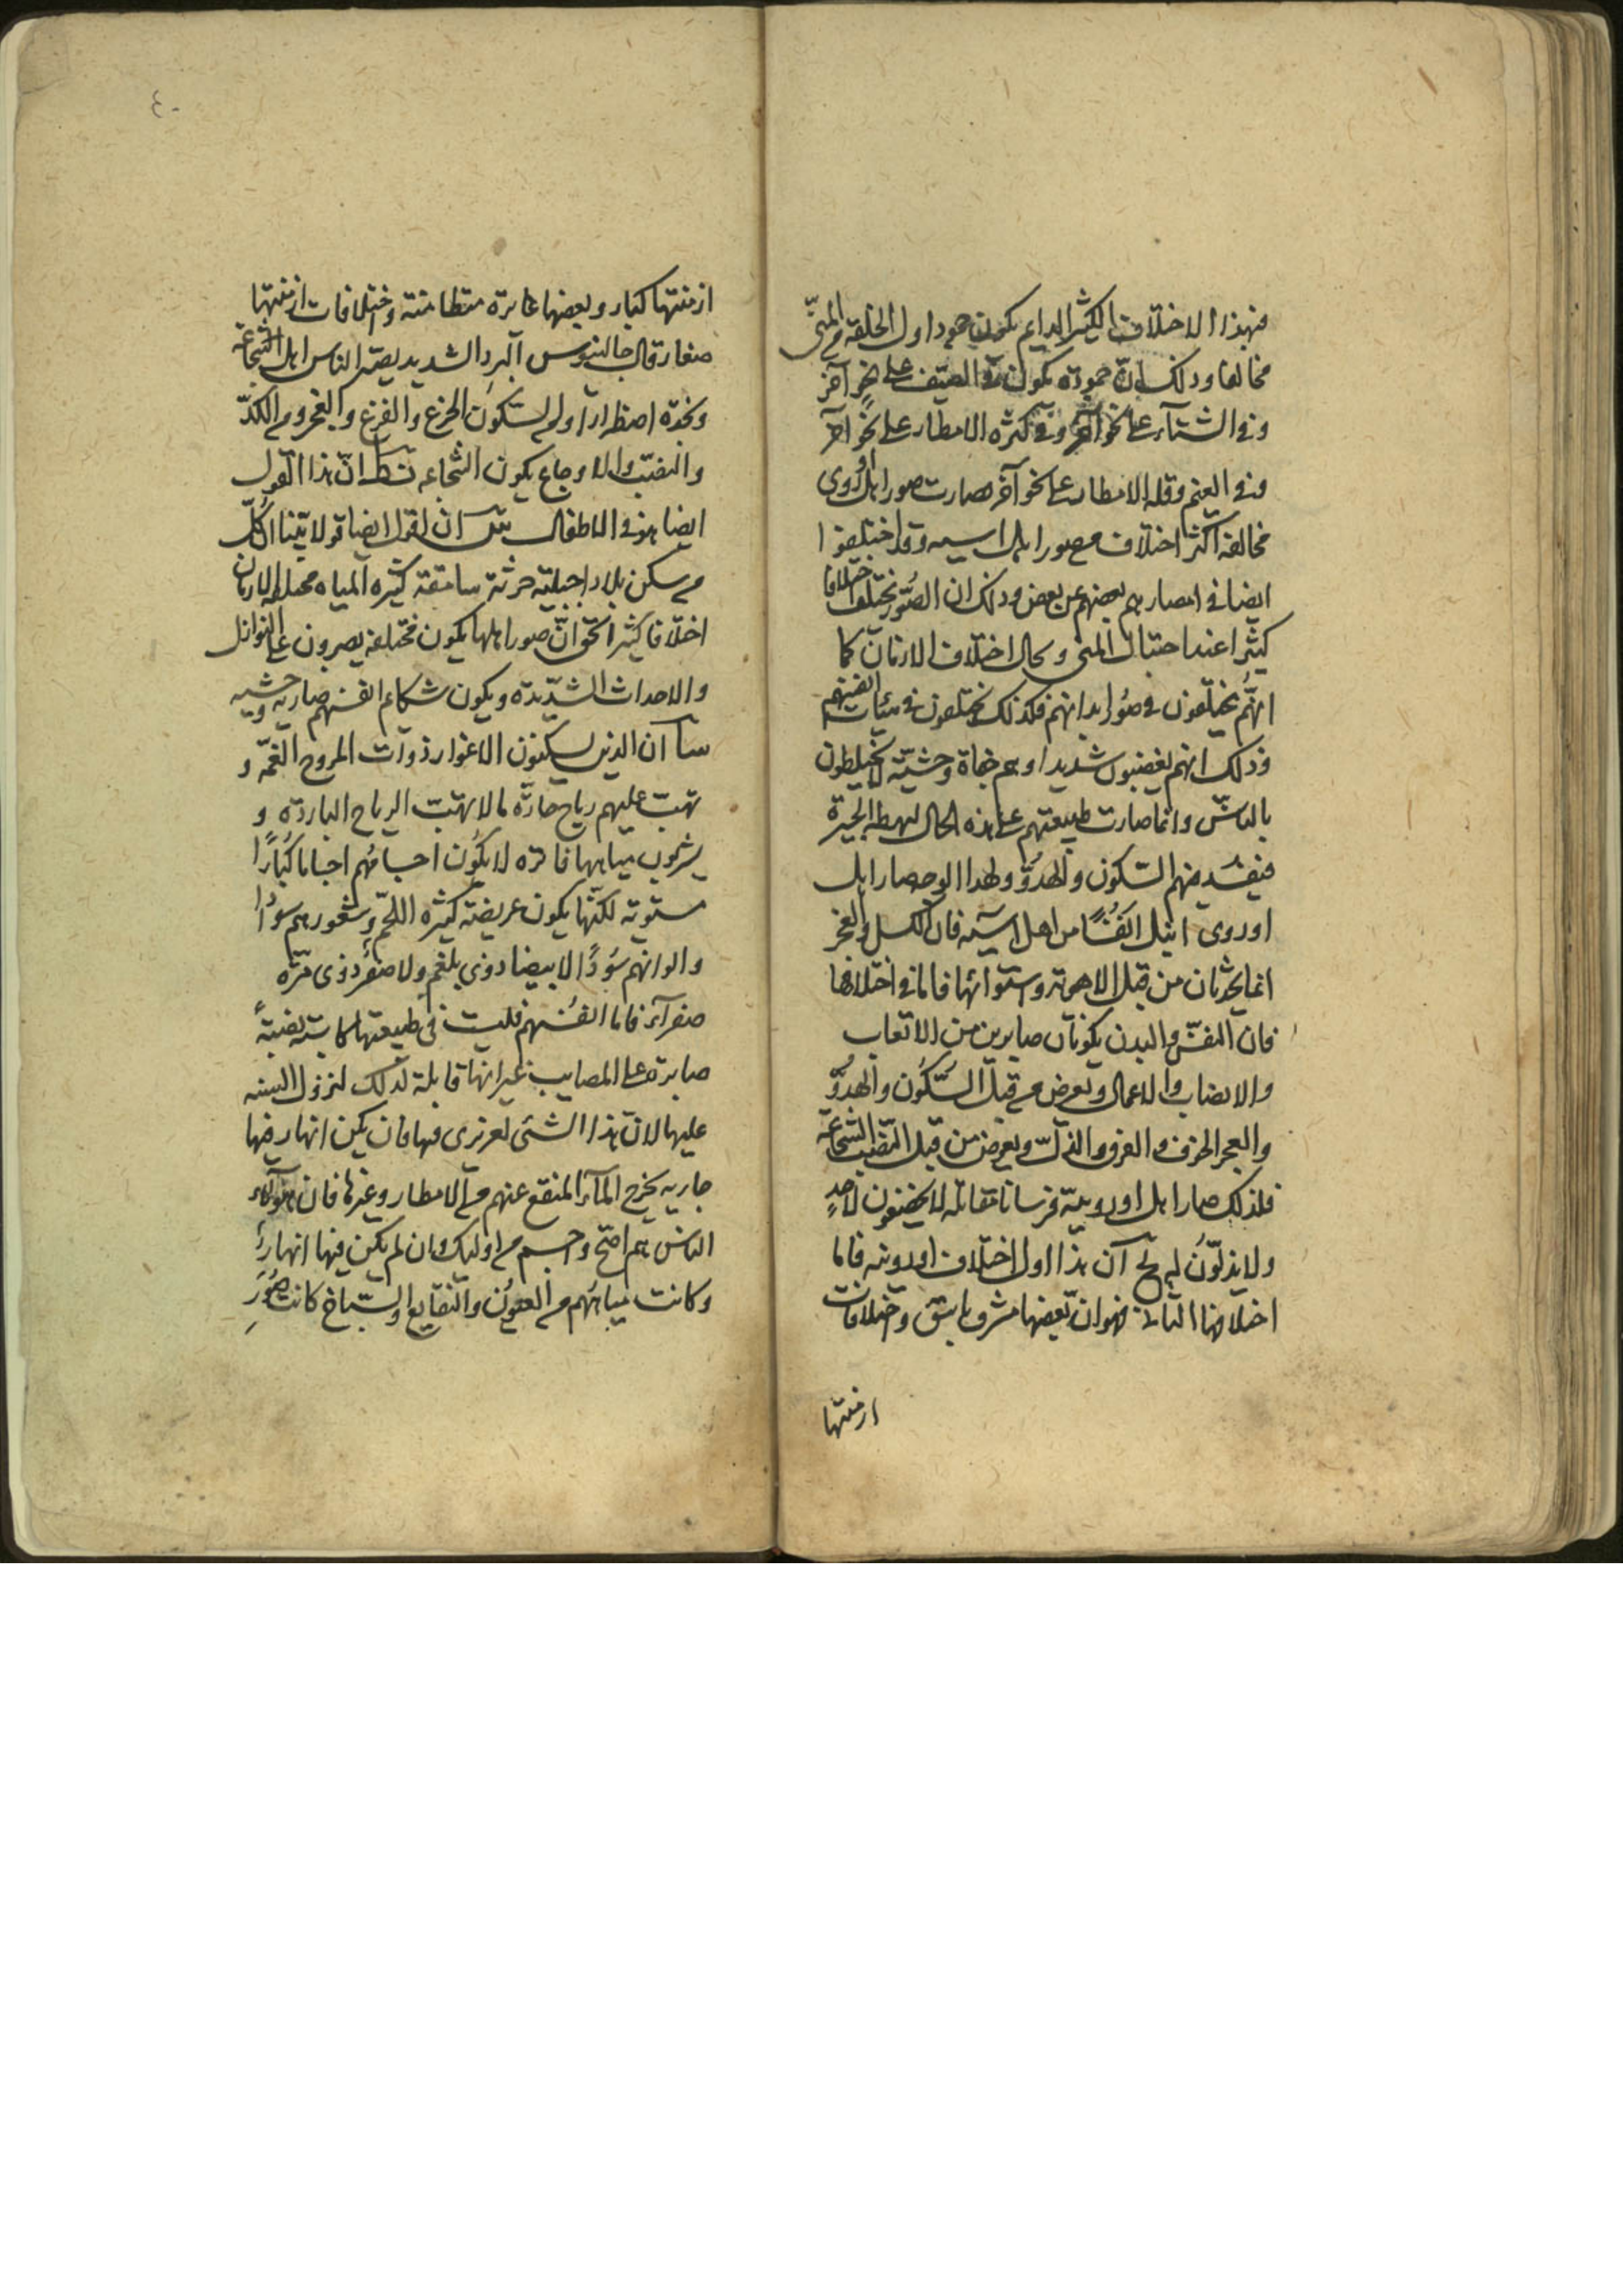 فبهذا الاختلاف الكثير الدايم يكون جمود اول الخلقه في المنىّ
مخالفا وذلك انّ جموده يكون في الصيّف على نحوٍ آخر
وفي الشتآء على نحو آخر وفي كثره الامطار على نحوٍ آخر
وفي الغيم وقله الامطار على نحو آخر فصارت صور اهل اوروى
مخالفه اكثر اختلاف من صور اهل اسيه وقد اختلفوا
ايضا في امصارهم بعضهم عن بعض وذلك ان الصُّور تختلف اختلافا
كثيرا عند احتبال المنى وبحال اختلاف الازمان كما
انهَّم يختلفون في صوُر ابدانهم فكذلك يختلفون في هيئات انفسهم
وذلك انهم يغضبون شديدا وهم جفاة وحشيّة لا يختلطون
بالناسّ وانما صارت طبيعتهم على هذه الحال لهبطه الحيرة
فيفسُد منهم السّكون والهدُوّ ولهذا الوجه صار اهل
اوروى انبل انفُسًا من اهل آسيه فان الكسل والعجز
انما يحدثان من قبل الاهويه واستوائها فاما في اختلافها
فان النفسّ والبدن يكونان صابرين من الاتعاب
والانصاب والاعمال ويعرض من قبل السّكُون والهدُوّ
والعجز الخوف والفرق والذلّ ويعرض من قبل التّعب الشجاعة
فلذلك صار اهل اوروبيّة فرسانا مقاتله لا يخضعون لاحدٍ
ولا يذلّون له ج آن هذا اول اختلاف اوروبيه فاما
اختلافها الثانى فهو ان بعضها مشرف باسق واختلافات
ازمنتها
٤٠
ازمنتها كبار وبعضها غايرة متطامنة واختلافات ازمنتها
صغار قال جالينوس البرد الشديد يصير الناس اهل الشجاعة
ونجدة اضطرارا ولم السّكون الجزع والفزع والعجز ومن الكدّ
والنصّب والاوجاع يكون الشجاعه ان هذا القول
ايضا هو في الاطفال ان اقول ايضا قولا بيّنا ان كلّ
من سكن بلادا جبليّة حرثة سامقة كثيره المياه مختلطه الازمان
اختلافا كثيرا حقّ انّ صور اهلها يكون مختلفه يصبرون على النوازل
والاحداث الشدّيدة ويكون شكاء انفسهم ضاريه وحشيه
ان الذين يسكنون الاغوار ذوات المروج الغمّه و
تهبّ عليهم رياح حارّه ما لا تهبّ الرياح البارده و
يشربون مياهها فاتره لا يكوُن اجسامهُم اجساما كُبارًا
مستوية لكنّها يكون عريضه كثيره اللحمّ وشعورهم سودًا
والوانهم سُودًا لا بيضا ذوي بلغم ولا صفرُ ذوى مرّه
صفرآء فاما انفسُهم فليست في طبيعتها بنجيّةً
صابرة على المصايب غير انها قابلة لذلك لنزول السنه
عليها لان هذا الشئ لغريزى فيها فان يكن انهار فيها
جاريه يخرج المآء المنقع عنهم من الامطار وغيرها فان هؤلاء
الناس هم اصّح واجسم من اولئك وان لم يكن فيها انهارُ
وكانت مياهُهم من العيوُن والنقايع والسّباخ كانت صُورُ